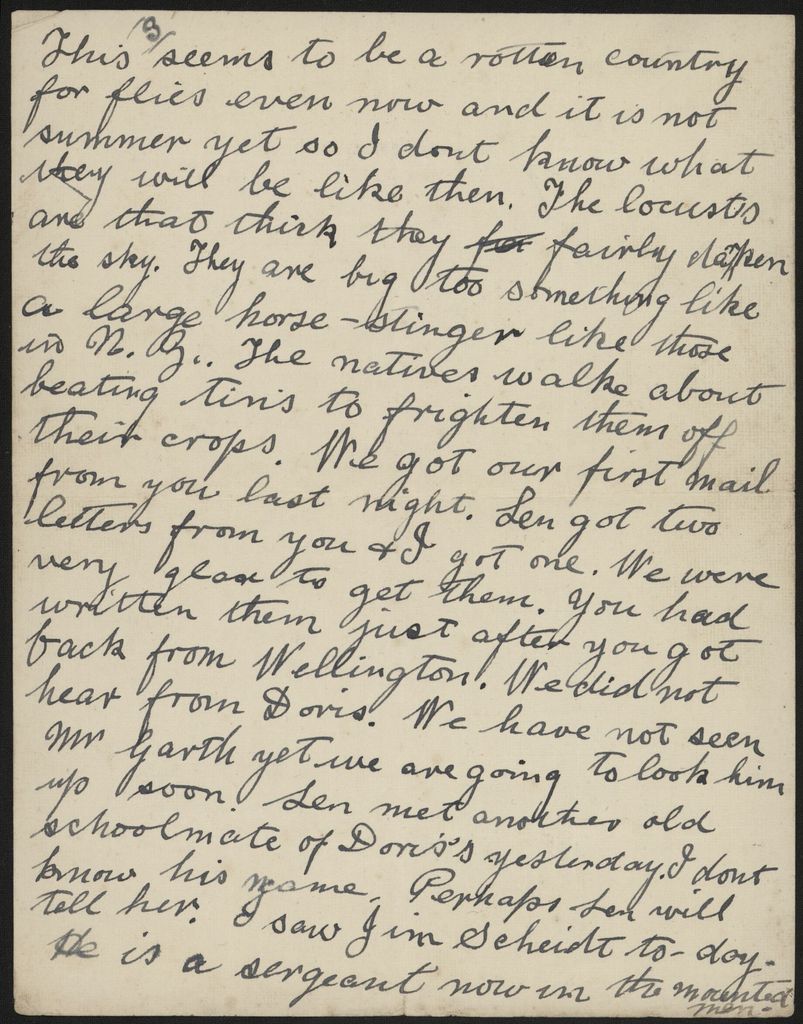 3
This seems to be a rotten country
for flies even now and it is not
summer yet so I dont know what
they will be like then. The locusts
are that thick they fairly darken
the sky. They are big too something like
a large horse-stinger like those
in N. Z.. The natives walke about
beating tins to frighten them off
their crops. We got our first mail
from you last night. Len got two
letters from you & I got one. We were
very glad to get them. You had
written them just after you got
back from Wellington. We did not
hear from Doris. We have not seen
Mr Garth yet we are going to look him
up soon. Len met another old
schoolmate of Doris's yesterday. I dont
know his name. Perhaps Len will
tell her. I saw Jim Scheidt to-day.
He is a sergeant now in the mounted
men.